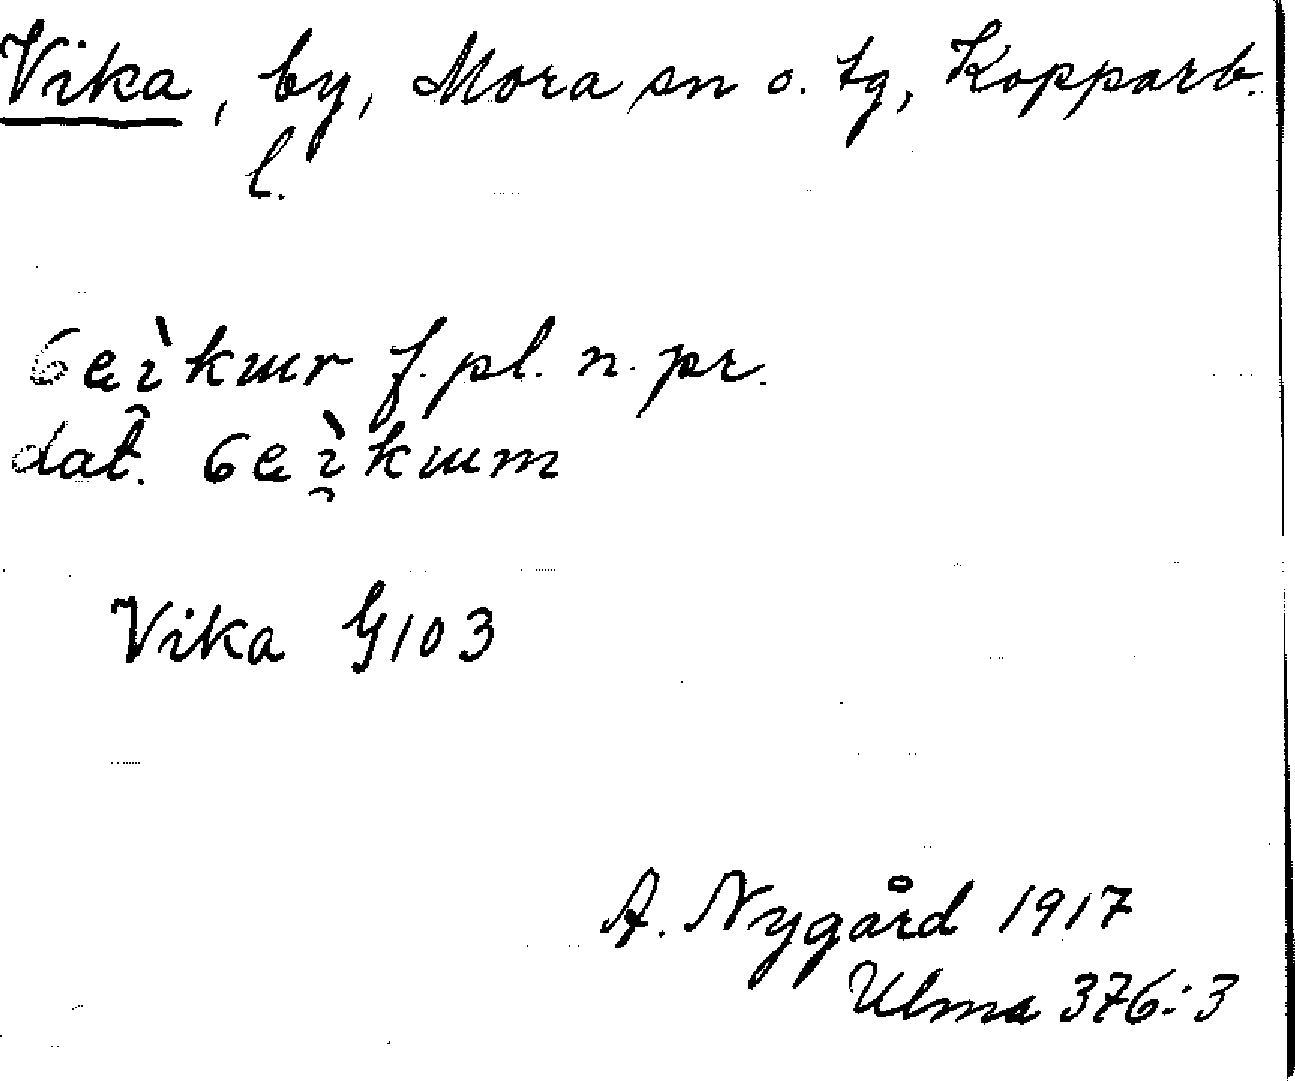 Vika, by, Mora sn o. tg, Kopparb.
l.
f. pl. n. pr.
dat.
Vika G103
A. Nygård 1917
Ulma 376:3